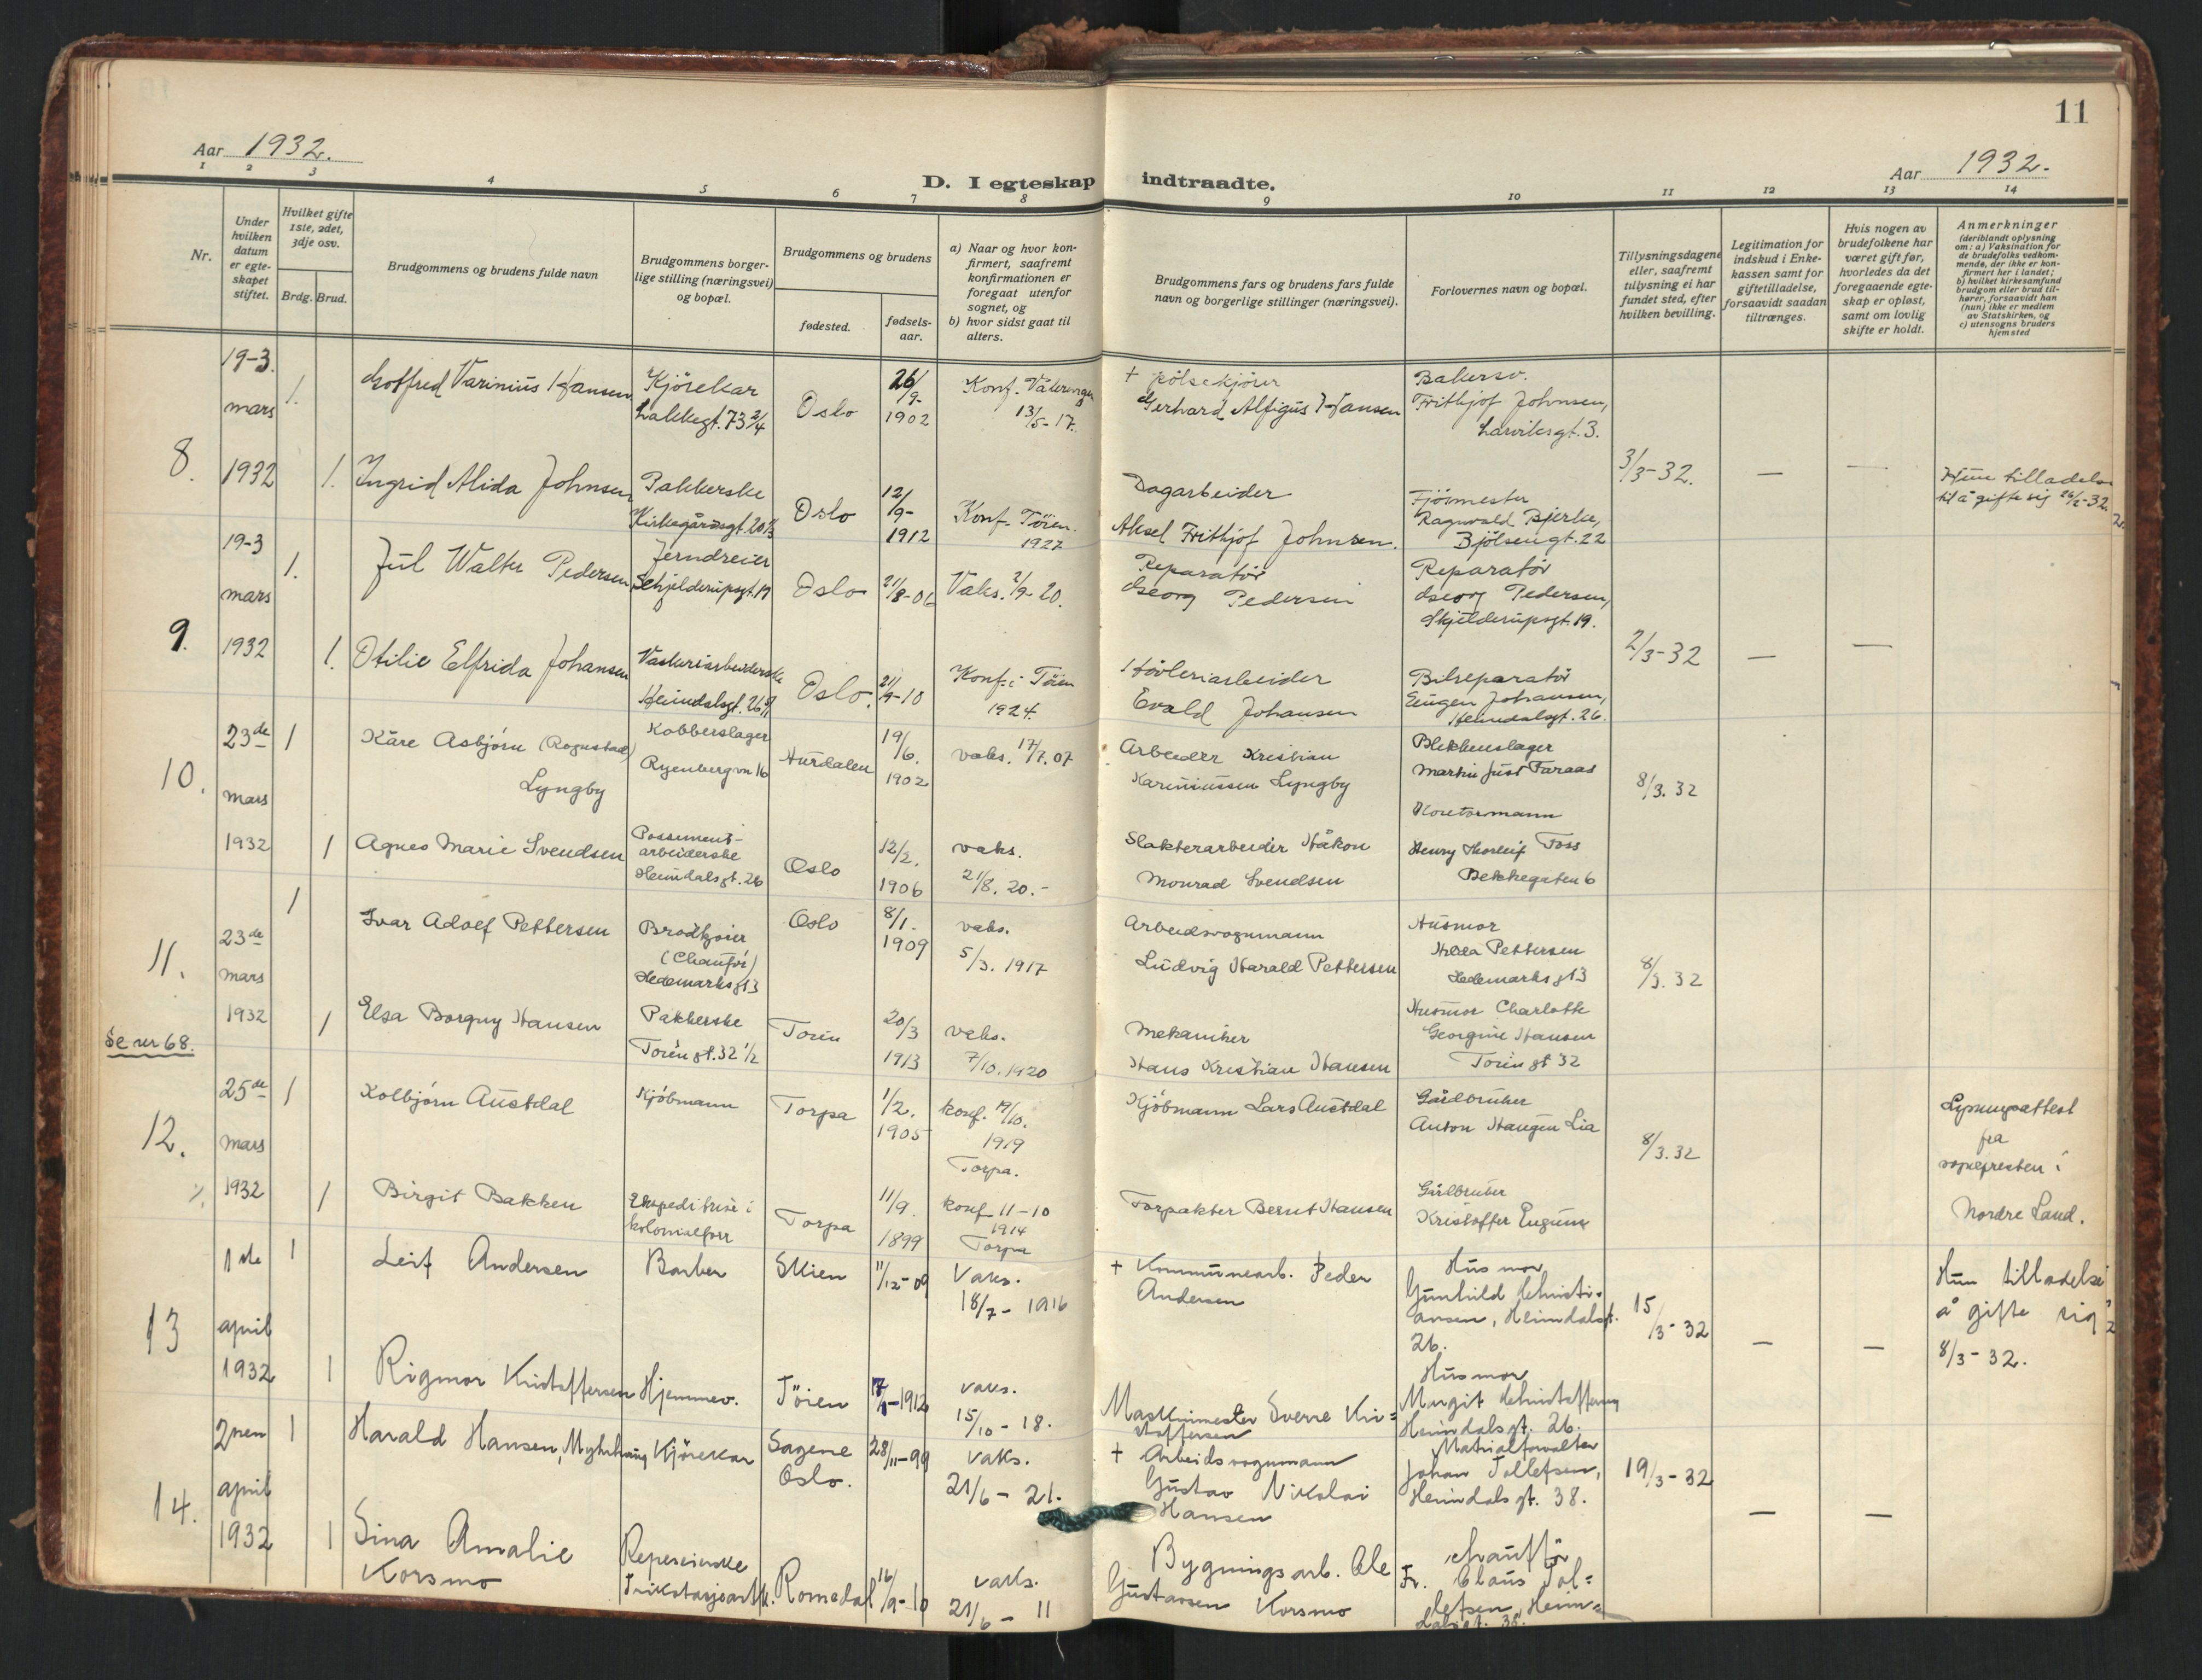 11
Aar 1932.
D. I egteskap indtraadte.
Aar 1932.
1 2 3 4 5 6 7 8 9 10 11 12 13 14
Nr.
Under hvilken datum er egte-skapet stiftet.
Hvilket gifte 1ste, 2det, 3dje osv.
Brdg. Brud.
Brudgommens og brudens fulde navn
Brudgommens borger-lige stilling (næringsvei) og bopæl.
Brudgommens og brudens
fødested.
fødsels-aar.
a) Naar og hvor kon-firmert, saafremt konfirmationen er foregaat utenfor sognet, og
b) hvor sidst gaat til alters.
Brudgommens fars og brudens fars fulde navn og borgerlige stillinger (næringsvei).
Forlovernes navn og bopæl.
Tillysningsdagene eller, saafremt tillysning ei har fundet sted, efter hvilken bevilling.
Legitimation for indskud i Enke-kassen samt for giftetilladelse, forsaavidt saadan tiltrænges.
Hvis nogen av brudefolkene har været gift før, hvorledes da det foregaaende egte-skap er opløst, samt om lovlig skifte er holdt.
Anmerkninger
(deriblandt oplysning om: a) Vaksination for de brudefolks vedkom-mende, der ikke er kon-firmert her i landet;
b) hvilket kirkesamfund brudgom eller brud til-hører, forsaavidt han (hun) ikke er medlem av Statskirken, og
c) utensogns bruders hjemsted
8.
19-3. mars 1932
1. Gotfred Varinius Hansen
Kjørekar
Lakkegt. 73 2/4
Oslo
26/9- 1902
Konf. Vålerengen
13/5-17.
+ pølsekjører
Gerhard Alfigus Hansen
Bakersv.
Frithjof Johnsen,
Larviksgt. 3.
3/3-32. — —
1. Ingrid Alida Johnsen
Pakkerske
Kirkegårdsgt. 20
Oslo
12/9- 1912
Konf. Tøien.
1927
Dagarbeider
Aksel Frithjof Johnsen.
Ragnvald Bjerke,
Bjølsengt. 22
Hun tilladelse
til å gifte sig 26/2-32.
9.
19-3 mars 1932
1. Jul Walter Pedersen
Jerndreier
Schjelderupsgt. 19
Oslo
21/8-06
Vaks. 2/9-20.
Reparatør
Georg Pedersen
Reparatør
Georg Pedersen,
Skjelderupsgt. 19.
2/3-32 — —
1. Otilie Elfrida Johansen
Vaskeriarbeiderske
Heimdalsgt. 26
Oslo.
21/9-10
Konf. i Tøien
1924.
Høvleriarbeider
Evald Johansen
Bilreparatør
Eugen Johansen,
Heimdalsgt. 26.
10.
23de mars 1932
1 Kåre Asbjørn (Rognstad)
Lyngby
Kobberslager
Ryenbergvn 16
Hurdalen
19/6. 1902
vaks. 17/7.07
Arbeider Kristian
Lyngby
Blikkenslager
Martin Just Faraas
8/3. 32
1 Agnes Marie Svendsen
Possement-
arbeiderske
Heimdalsgt. 26
Oslo
12/2. 1906
vaks.
21/8. 20.-
Slakterarbeider Håkon
Monrad Svendsen
Kontormann
Henry Thorleif Foss
Bekkegaten 6
11.
23de mars 1932
1 Ivar Adolf Pettersen
Brødkjører
(Chauffør)
Hedemarksgt 3
Oslo
8/1. 1909
vaks.
5/3. 1917
Arbeidsvognmann
Ludvig Harald Pettersen
Husmor
Hilda Pettersen
Hedemarksgt 3
8/3. 32
Se nr 68.
1 Elsa Borgny Hansen
Pakkerske
Torëngt. 32 1/2
20/3 1913
vaks.
7/10. 1920
Mekaniker
Hans Kristian Hansen
Husmor Charlotte
Georgine Hansen
12.
25de mars 1932
1 Kolbjørn Austdal
Kjøbmann
Torpa
1/2. 1905
konf. 19/10.
1919
Torpa.
Kjøbmann Lars Austdal
Gårdbruker
Anton Haugen Lia
8/3. 32
Lysningsattest
fra
sognepresten i
Nordre Land.
1 Birgit Bakken
Ekspeditrise i
kolonialforr
Torpa
11/9. 1899
konf 11-10
1914
Torpa
Forpakter Bernt Hansen
Gårdbruker
Kristoffer
13
1ste april 1932
1 Leif Andersen
Barber
Skien
11/12-09
Vaks.
18/7- 1916
+ Kommunearb. Peder
Andersen
Husmor
Gunhild Christi-
ansen, Heimdalsgt.
26.
15/3-32 — —
Hun tilladelse
å gifte sig
8/3-32.
1 Rigmor Kristoffersen
Hjemmev.
Tøien
1912
vaks.
15/10-18.
Maskinmester Sverre Kri=
stoffersen
Husmor
Margit Christoffersen
Heimdalsgt. 26.
14.
2nen april 1932
1 Harald Hansen, Myhrhaug
Kjørekar
Sagene
Oslo.
28/11-99
vaks.
21/6- 21.
+ Arbeidsvognmann
Gustav Nikolai
Hansen
Matrialforvalter
Johan Tollefsen,
Heimdalsgt. 38.
19/3-32 — —
1 Sina Amalie
Korsmo
Romedal
16/9-10
vaks.
21/6- 11
Bygningsarb. Ole
Gustavsen Korsmo
chauffør
Fr. Claus Tol=
lefsen, Heim=
dalsgt. 38.